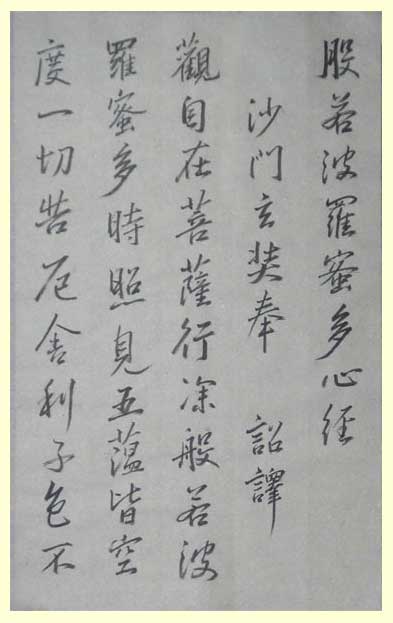 般若波羅蜜多心經
沙門玄奘奉 詔譯
觀自在菩薩行深般若波
羅蜜多時照見五蘊皆空
度一切苦厄舍利子色不